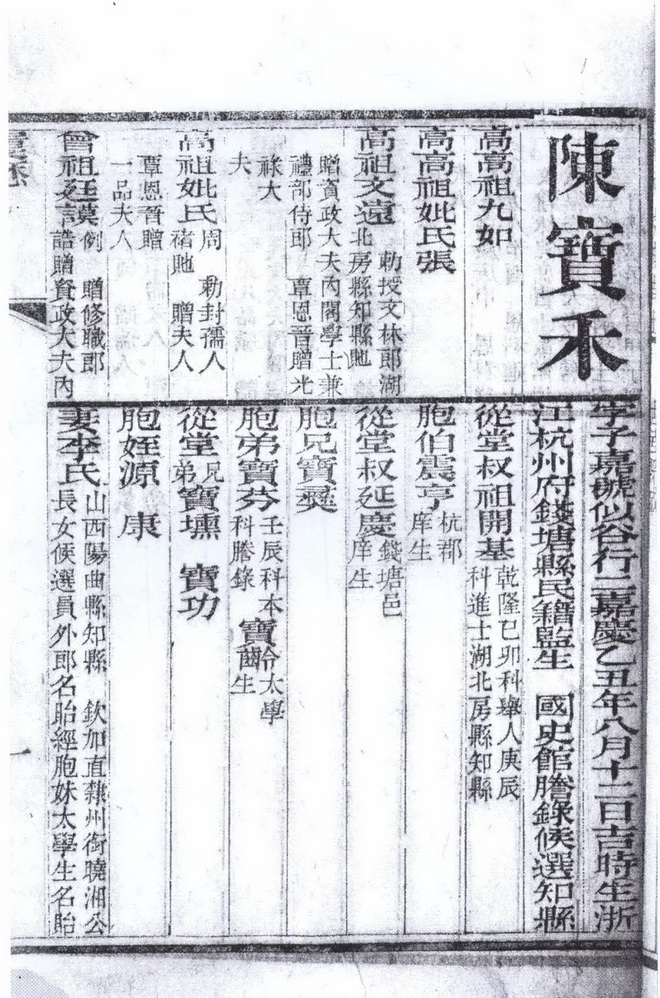 陳寶禾
字子嘉號似谷行二嘉慶乙丑年八月十二日吉時生浙
江杭州府錢塘縣民籍監生 國史館謄錄候選知縣
高高祖九如
高高祖妣氏張
高祖文遠
北房縣知縣貤
勅授文林郎湖
贈資政大夫內閣學士兼
禮部侍郎 覃恩晉贈光
祿大
夫
高祖妣氏
周 勅封孺人
禇貤 贈夫人
覃恩晉贈
一品夫人
曾祖廷謨
例 贈修職郎
誥贈資政大夫內
從堂叔祖開基
乾隆己卯科舉人庚辰
科進士湖北房縣知縣
胞伯震亨
杭郡
庠生
從堂叔延慶
錢塘邑
庠生
胞兄寶獎
胞弟寶芬
壬辰科本
科謄錄
寶
太學
生
從堂
兄
弟
寶壎 寶功
胞姪源 康
妻李氏
山西陽曲縣知縣 欽加直隸州銜曉湘公
長女候選員外郎名貽經胞妹太學生名貽
一